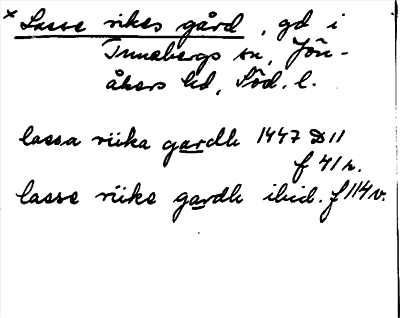 * Lasse rikes gård, gd i
Tunabergs sn, Jön-
åkers hd, Söd. l.
lassa riika gardh 1447 D 11
f 41 r.
lasse riike gardh ibid. f 114 v.